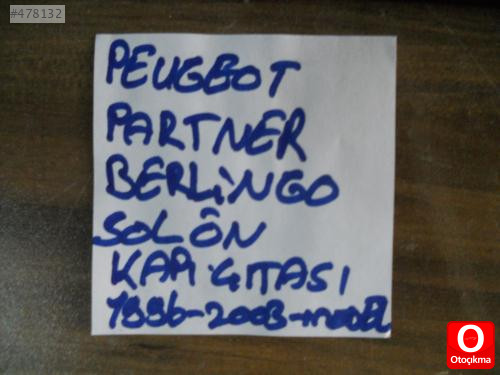 #478132
PEUGEOT
PARTNER
BERLİNGO
SOL ÖN
KAPI ÇITASI
1996-2003-MODEL
Otoçıkma